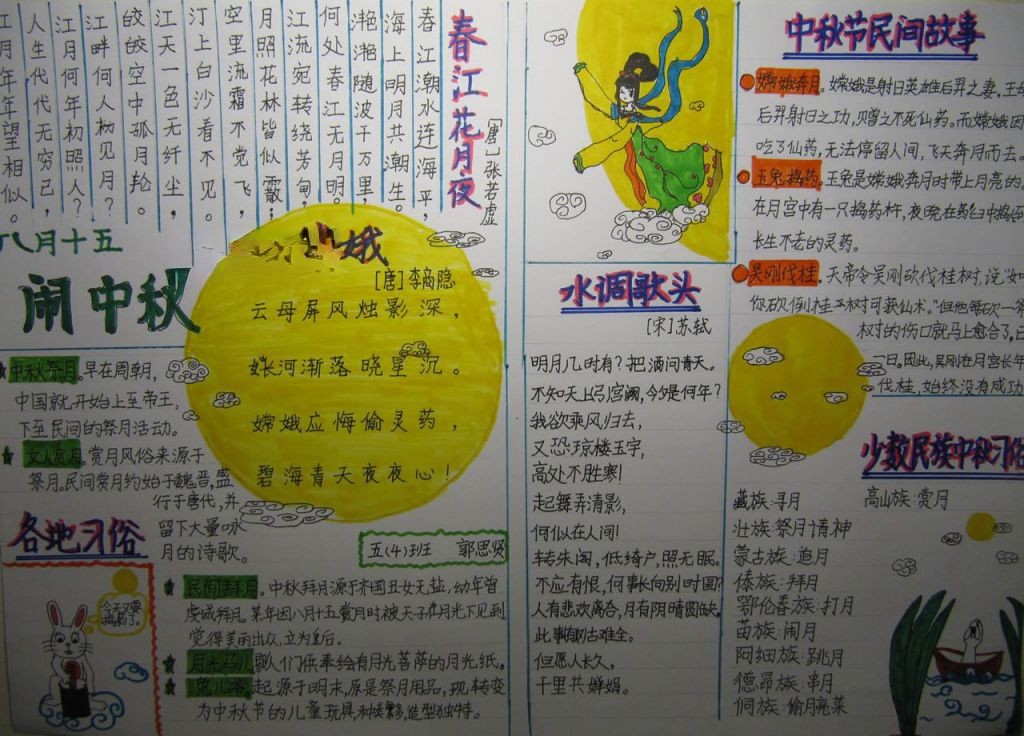 春江花月夜
[唐]张若虚
春江潮水连海平，
海上明月共潮生。
滟滟随波千万里，
何处春江无月明。
江流宛转绕芳甸，
月照花林皆似霰；
空里流霜不觉飞，
汀上白沙看不见。
江天一色无纤尘，
皎皎空中孤月轮。
江畔何人初见月？
江月何年初照人？
人生代代无穷已，
江月年年望相似。
八月十五
闹中秋
中秋祭月。早在周朝，
中国就开始上至帝王，
下至民间的祭月活动。
文人赏月。赏月风俗来源于
祭月。民间赏月约始于魏晋，盛
行于唐代，并
留下大量咏
月的诗歌。
娥
[唐]李商隐
云母屏风烛影深，
长河渐落晓星沉。
嫦娥应悔偷灵药，
碧海青天夜夜心！
五(4)班 郭思贤
各地习俗
今天又要
捣药了。
民间拜月。中秋拜月源于齐国丑女无盐，幼年曾
虔诚拜月。某年因八月十五赏月时被天子在月光下见到
觉得美丽出众，立为皇后。
月光马儿 人们供奉绘有月光菩萨的月光纸。
兔儿爷。起源于明末，原是祭月用品，现转变
为中秋节的儿童玩具，种类繁多，造型独特。
水调歌头
[宋]苏轼
明月几时有？把酒问青天。
不知天上宫阙，今夕是何年？
我欲乘风归去，
又恐琼楼玉宇，
高处不胜寒！
起舞弄清影，
何似在人间！
转朱阁，低绮户，照无眠。
不应有恨，何事长向别时圆？
人有悲欢离合，月有阴晴圆缺。
此事古难全。
但愿人长久，
千里共婵娟。
中秋节民间故事
嫦娥奔月。嫦娥是射日英雄后羿之妻，王母
后羿射日之功，赐之不死仙药。而嫦娥因
吃了仙药，无法停留人间，飞天奔月而去。
玉兔捣药。玉兔是嫦娥奔月时带上月亮的
在月宫中有一只捣药杵，夜晚在药臼中捣
长生不老的灵药。
吴刚伐桂。天帝令吴刚砍伐桂树，说
你砍倒桂树可获仙术。"但他每砍一
树的伤口就马上愈合了，
日。因此，吴刚在月宫长年
伐桂，始终没有成功
少数民族中秋习俗
藏族：寻月 高山族：赏月
壮族：祭月请神
蒙古族：追月
傣族：拜月
鄂伦春族：打月
苗族：闹月
阿细族：跳月
德昂族：串月
侗族：偷月亮菜